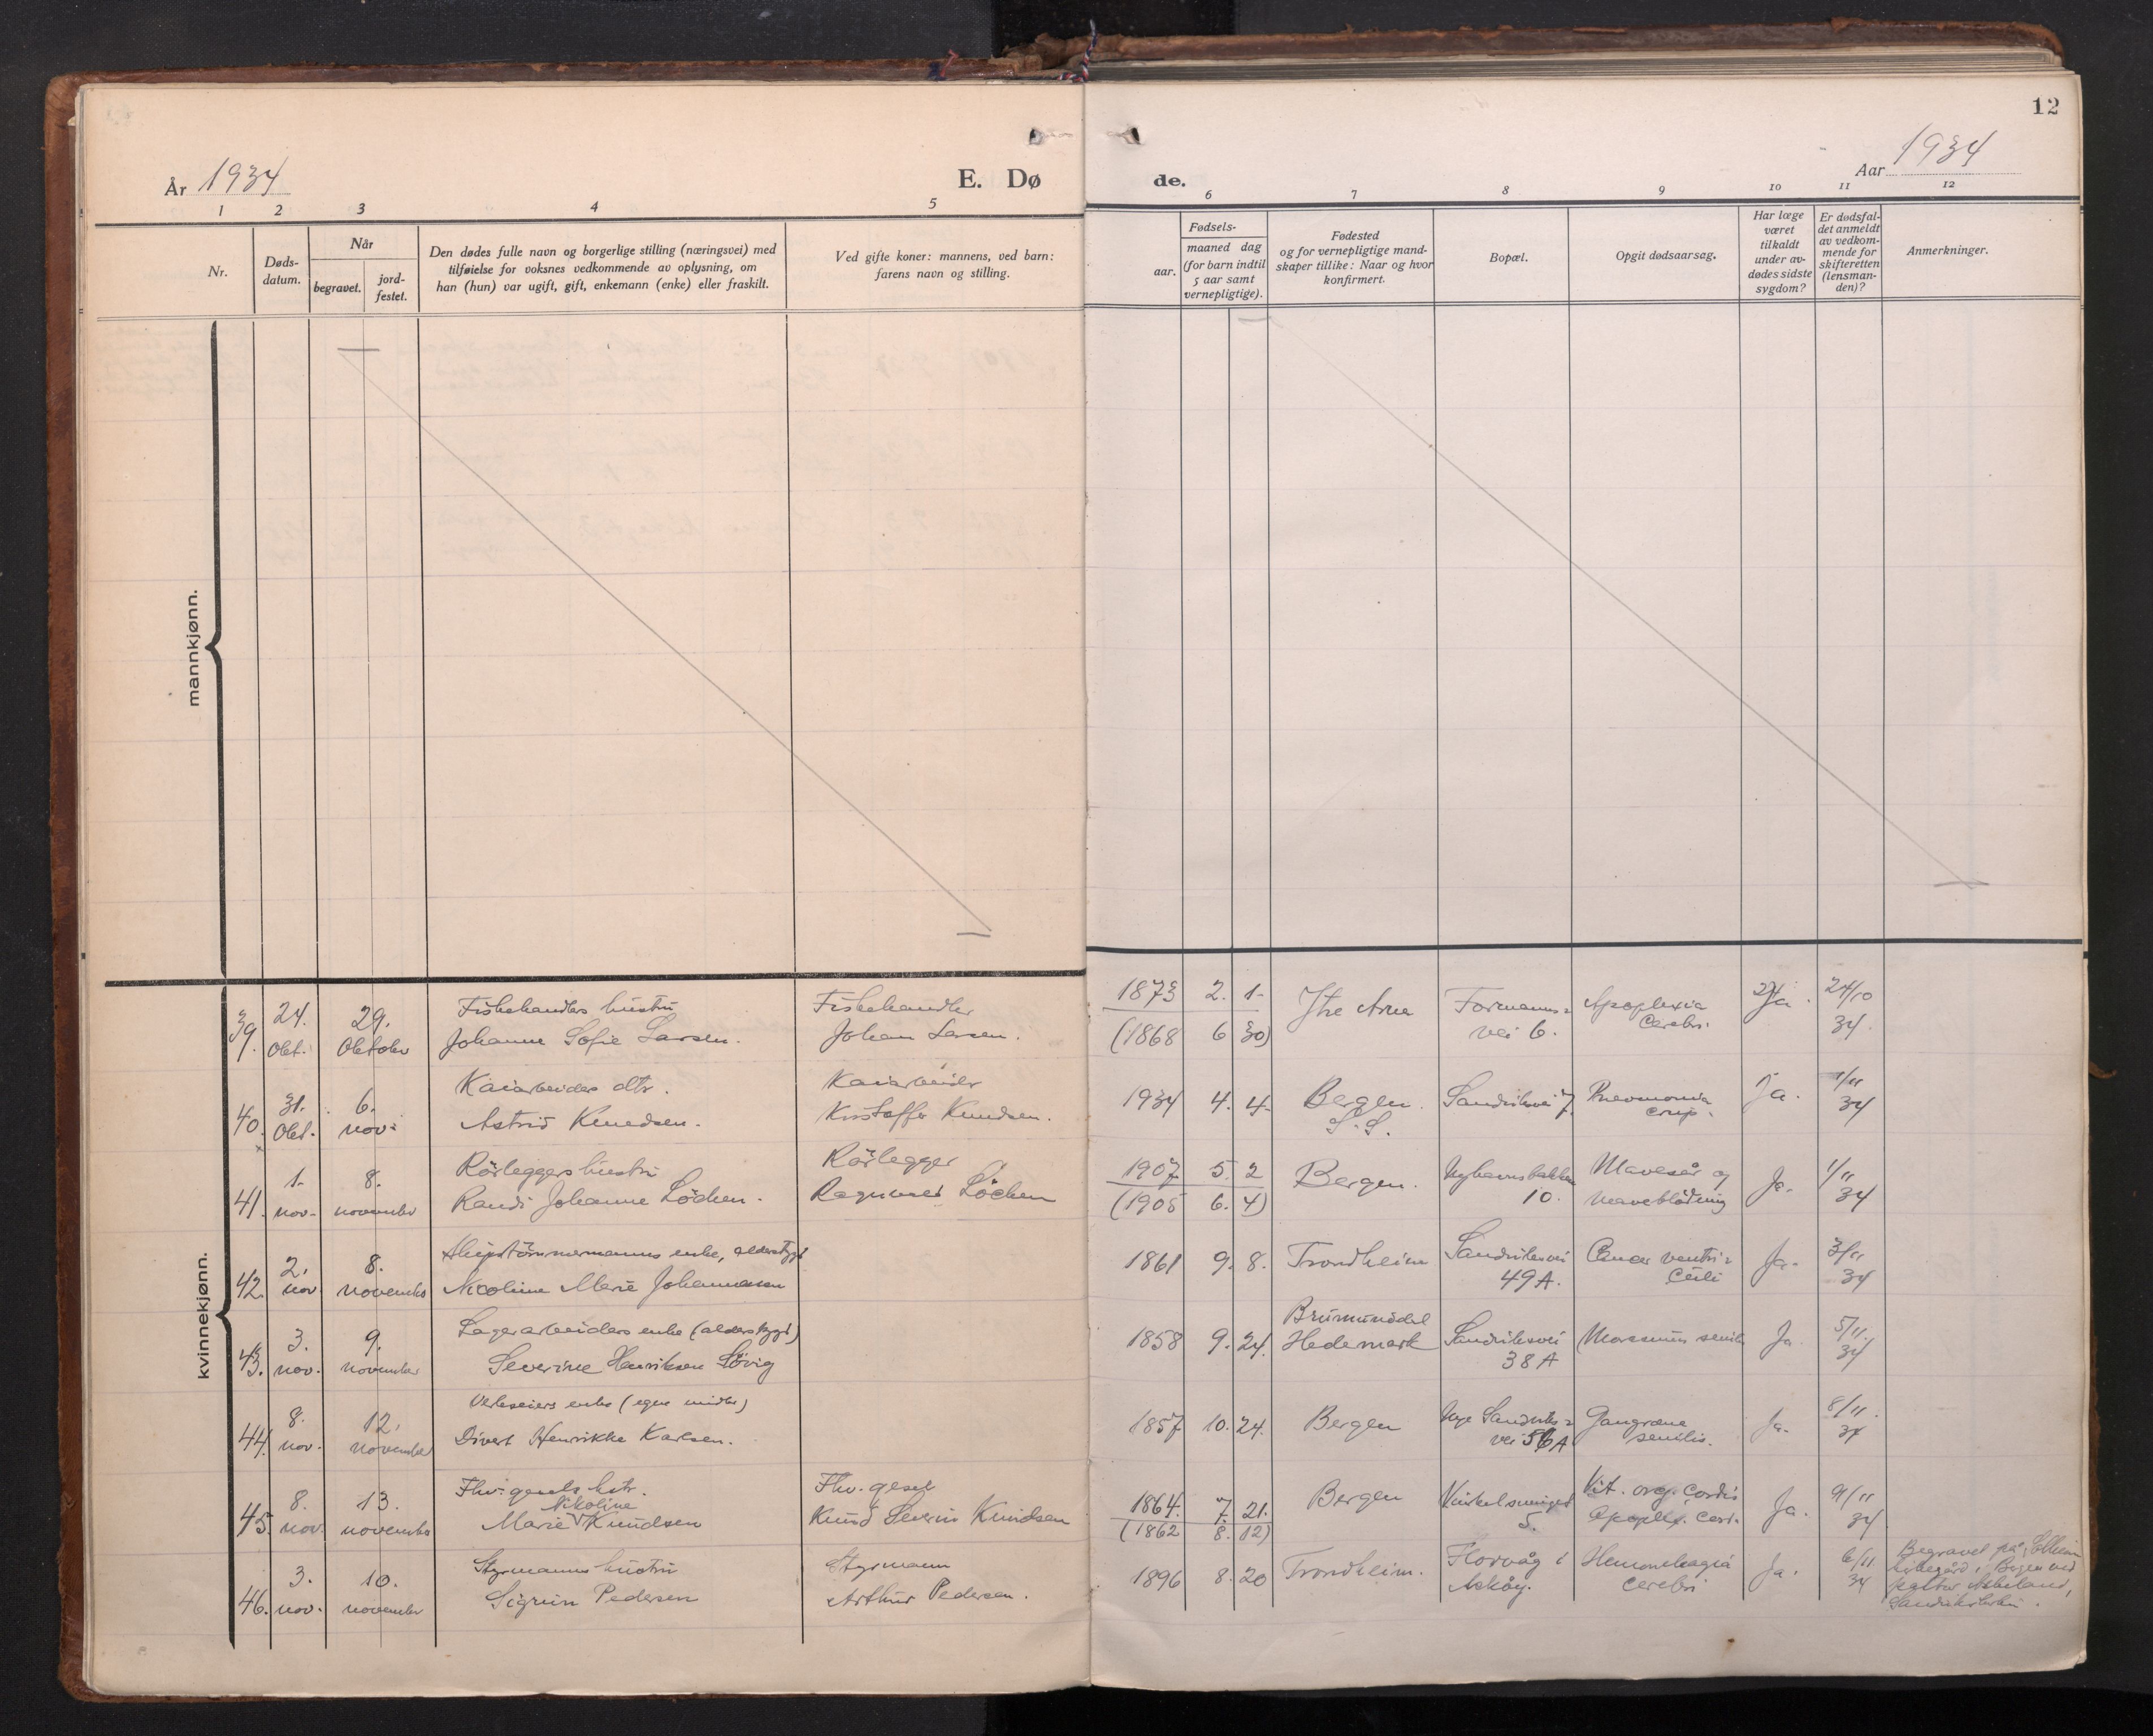 12
År 1934
E. Dø
de.
Aar 1934
1 2 3 4 5
6 7 8 9 10 11 12
Nr.
Døds-
datum.
Når
begravet.
jord-
festet.
Den dødes fulle navn og borgerlige stilling (næringsvei) med
tilføielse for voksnes vedkommende av oplysning, om
han (hun) var ugift, gift, enkemann (enke) eller fraskilt.
Ved gifte koner: mannens, ved barn:
farens navn og stilling.
Fødsels-
aar.
maaned dag
(for barn indtil
5 aar samt
vernepligtige).
Fødested
og for vernepligtige mand-
skaper tillike: Naar og hvor
konfirmert.
Bopæl.
Opgit dødsaarsag.
Har læge
været
tilkaldt
under av-
dødes sidste
sygdom?
Er dødsfal-
det anmeldt
av vedkom-
mende for
skifteretten
(lensman-
den)?
Anmerkninger.
mannkjønn.
kvinnekjønn.
39.
24.
Okt.
29.
Oktober
Fiskehandlers hustru
Johanne Sofie Larsen.
Fiskehandler
Johan Larsen.
1873 2. 1.
(1868 6 30)
Ytre Arna
Formanns-
vei 6.
Apoplexia
Cerebri.
Ja.
24/10
34.
40.
31.
Okt.
6.
nov.
Kaiarbeiders dtr.
Astrid Knudsen.
Kaiarbeider
Kristoffer Knudsen.
1934 4. 4.
Bergen.
S. S.
Sandviksvei 7.
Pneumonia
crup.
Ja.
1/11
34
41.
1.
nov.
8.
november
Rörleggers hustru
Randi Johanne Löchen.
Rörlegger
Ragnvald Löchen
1907 5. 2
(1905 6. 4)
Bergen.
Nyhavnsbakken
10.
Mavesår og
maveblödning
Ja.
1/11
34
42.
2.
nov.
8.
november
Skipstömmermanns enke, alderstrygd
Nicoline Marie Johannesen
1861 9. 8.
Trondheim
Sandviksvei
49A.
Cancer ventri-
culi
Ja.
3/11
34
43.
3.
nov.
9.
november
Lagerarbeiders enke (alderstrygd)
Severine Henriksen Lövig
1858 9. 24.
Brumunddal
Hedemark
Sandviksvei
38 A
Marasmus senilis
Ja
5/11.
34
44.
8.
nov.
12.
november
Verkseiers enke (egne midler)
Divert Henrikke Karlsen.
1857 10. 24.
Bergen
Nye Sandviks-
vei 56 A
Gangræne
senilis.
Ja.
8/11.
34
45.
8.
nov.
13.
november
Fhv. gesels hstr.
Nikoline
Marie Knudsen
Fhv. gesel
Knud Severin Knudsen
1864. 7. 21.
(1862 8. 12)
Bergen
5.
Vit. org. cordis
Apoplex. cerebr.
Ja.
9/11
34
46.
3.
nov.
10.
november
Styrmanns hustru
Sigrun Pedersen
Styrmann
Arthur Pedersen.
1896 8. 20
Trondheim.
Florvåg i
Askøy.
Hemorrhagia
cerebri
Ja.
6/11
34
Begravet på Solheim
kirkegård, Bergen ved
pastor Askeland,
Sandvikskirken.